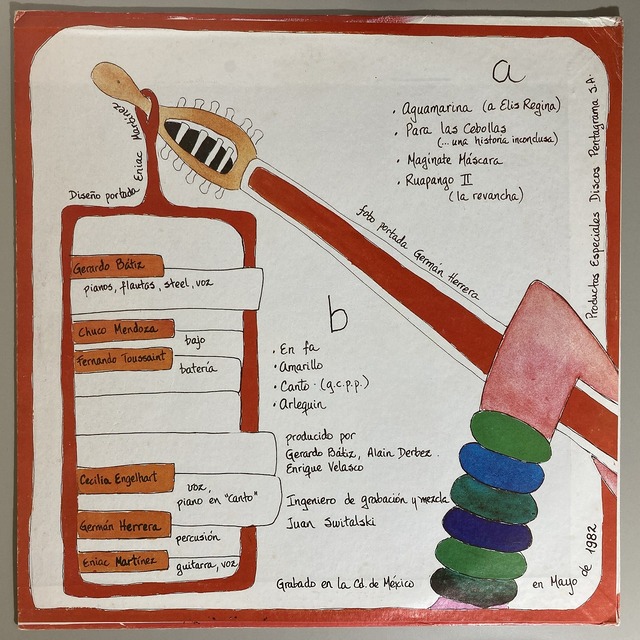 a
. Aguamarina (a Elis Regina)
. Para las Cebollas
(... una historia inconclusa)
. Maginate Máscara
. Ruapango II
(la revancha)
Productos Especiales Discos Pentagrama S.A.
Diseño portada Eniac Martínez
foto portada Germán Herrera
Gerardo Bátiz
pianos, flautas, steel, voz
Chuco Mendoza
bajo
Fernando Toussaint
batería
Cecilia Engelhart
voz,
piano en "Canto"
Germán Herrera
percusión
Eniac Martínez
guitarra, voz
b
. En fa
. Amarillo
. Canto (g.c.p.p.)
. Arlequin
producido por
Gerardo Bátiz, Alain Derbez.
Enrique Velasco
Ingeniero de grabación y mezcla
Juan Switalski
Grabado en la Cd. de México en Mayo de 1982